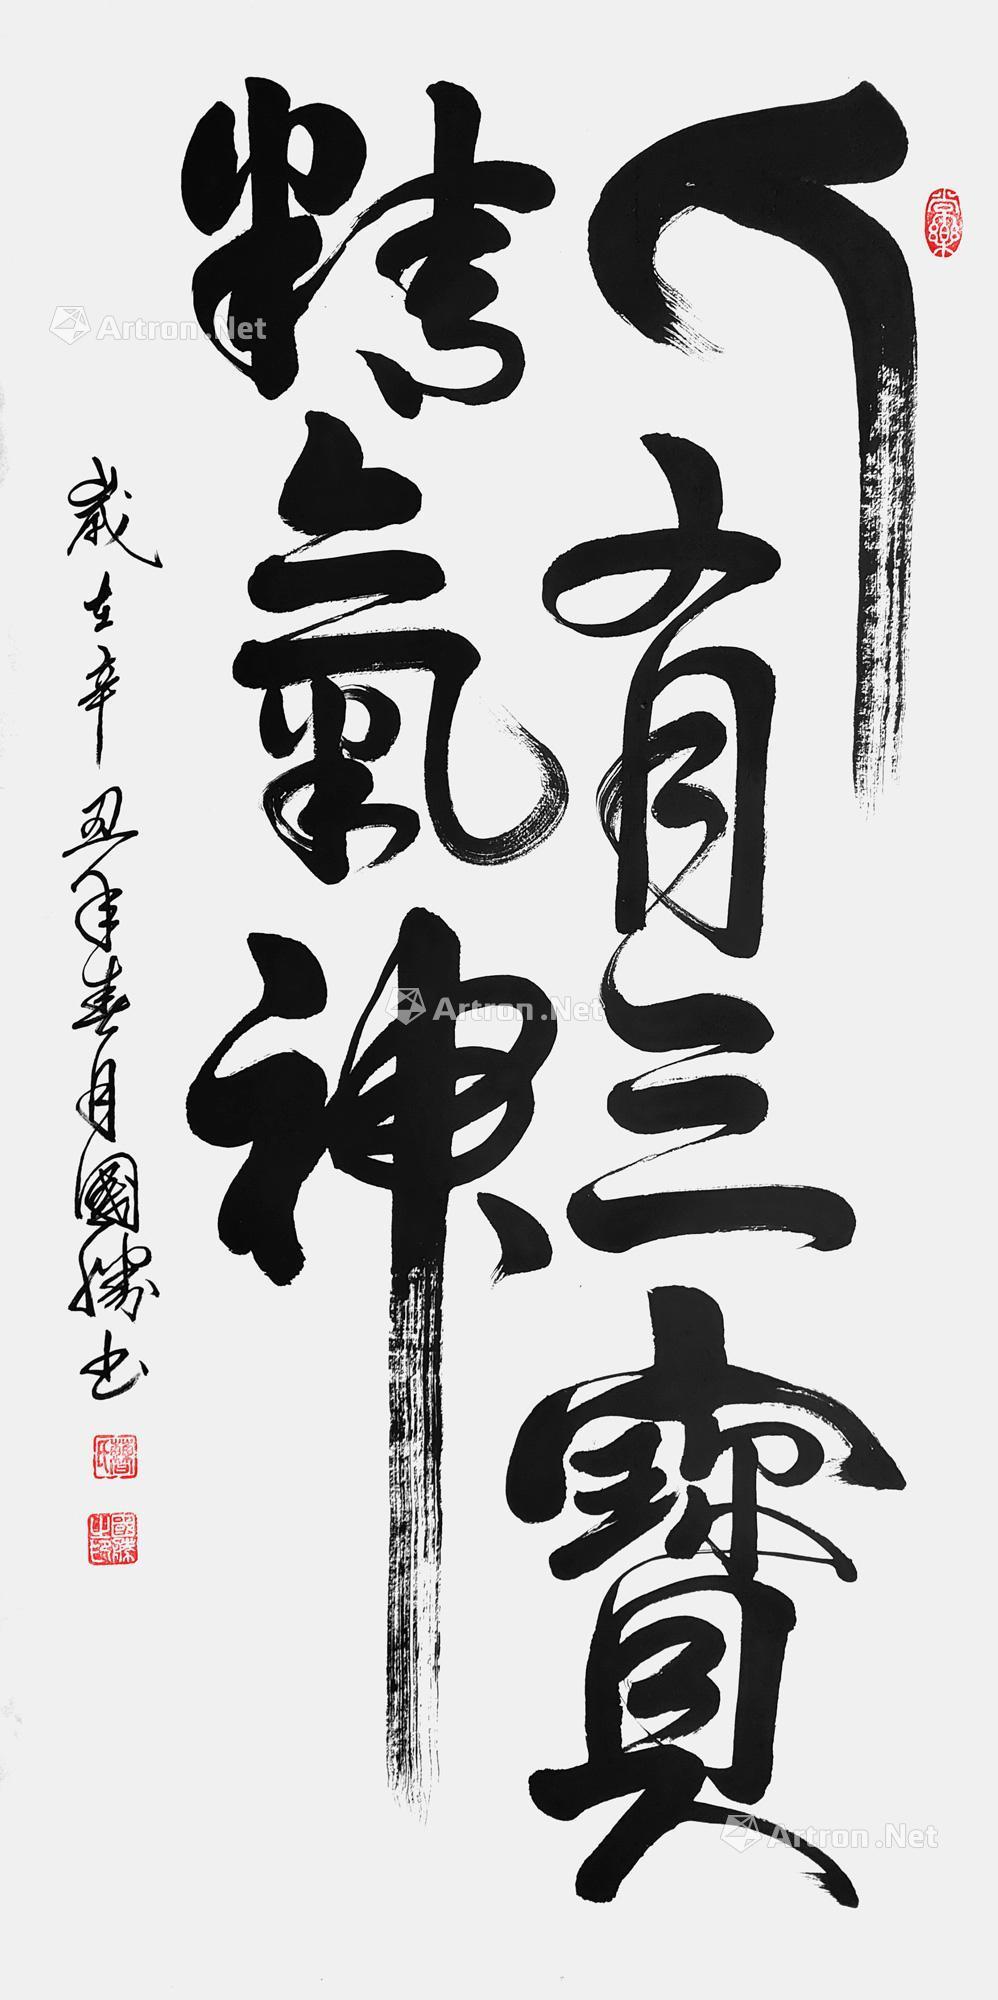 人有三寶
精氣神
歲在辛丑年春月國勝书
Artron.Net
Artron.Net
Artron.Net